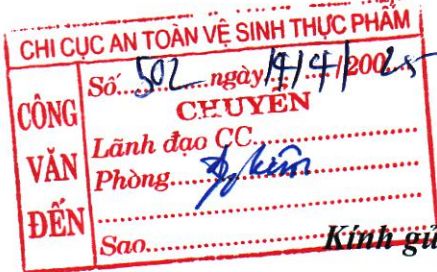 CHI CỤC AN TOÀN VỆ SINH THỰC PHẨM
CÔNG VĂN ĐẾN
Số 502 ngày 14/4/2025
CHUYỂN
Lãnh đạo CC
Phòng
Sao
Kính gử